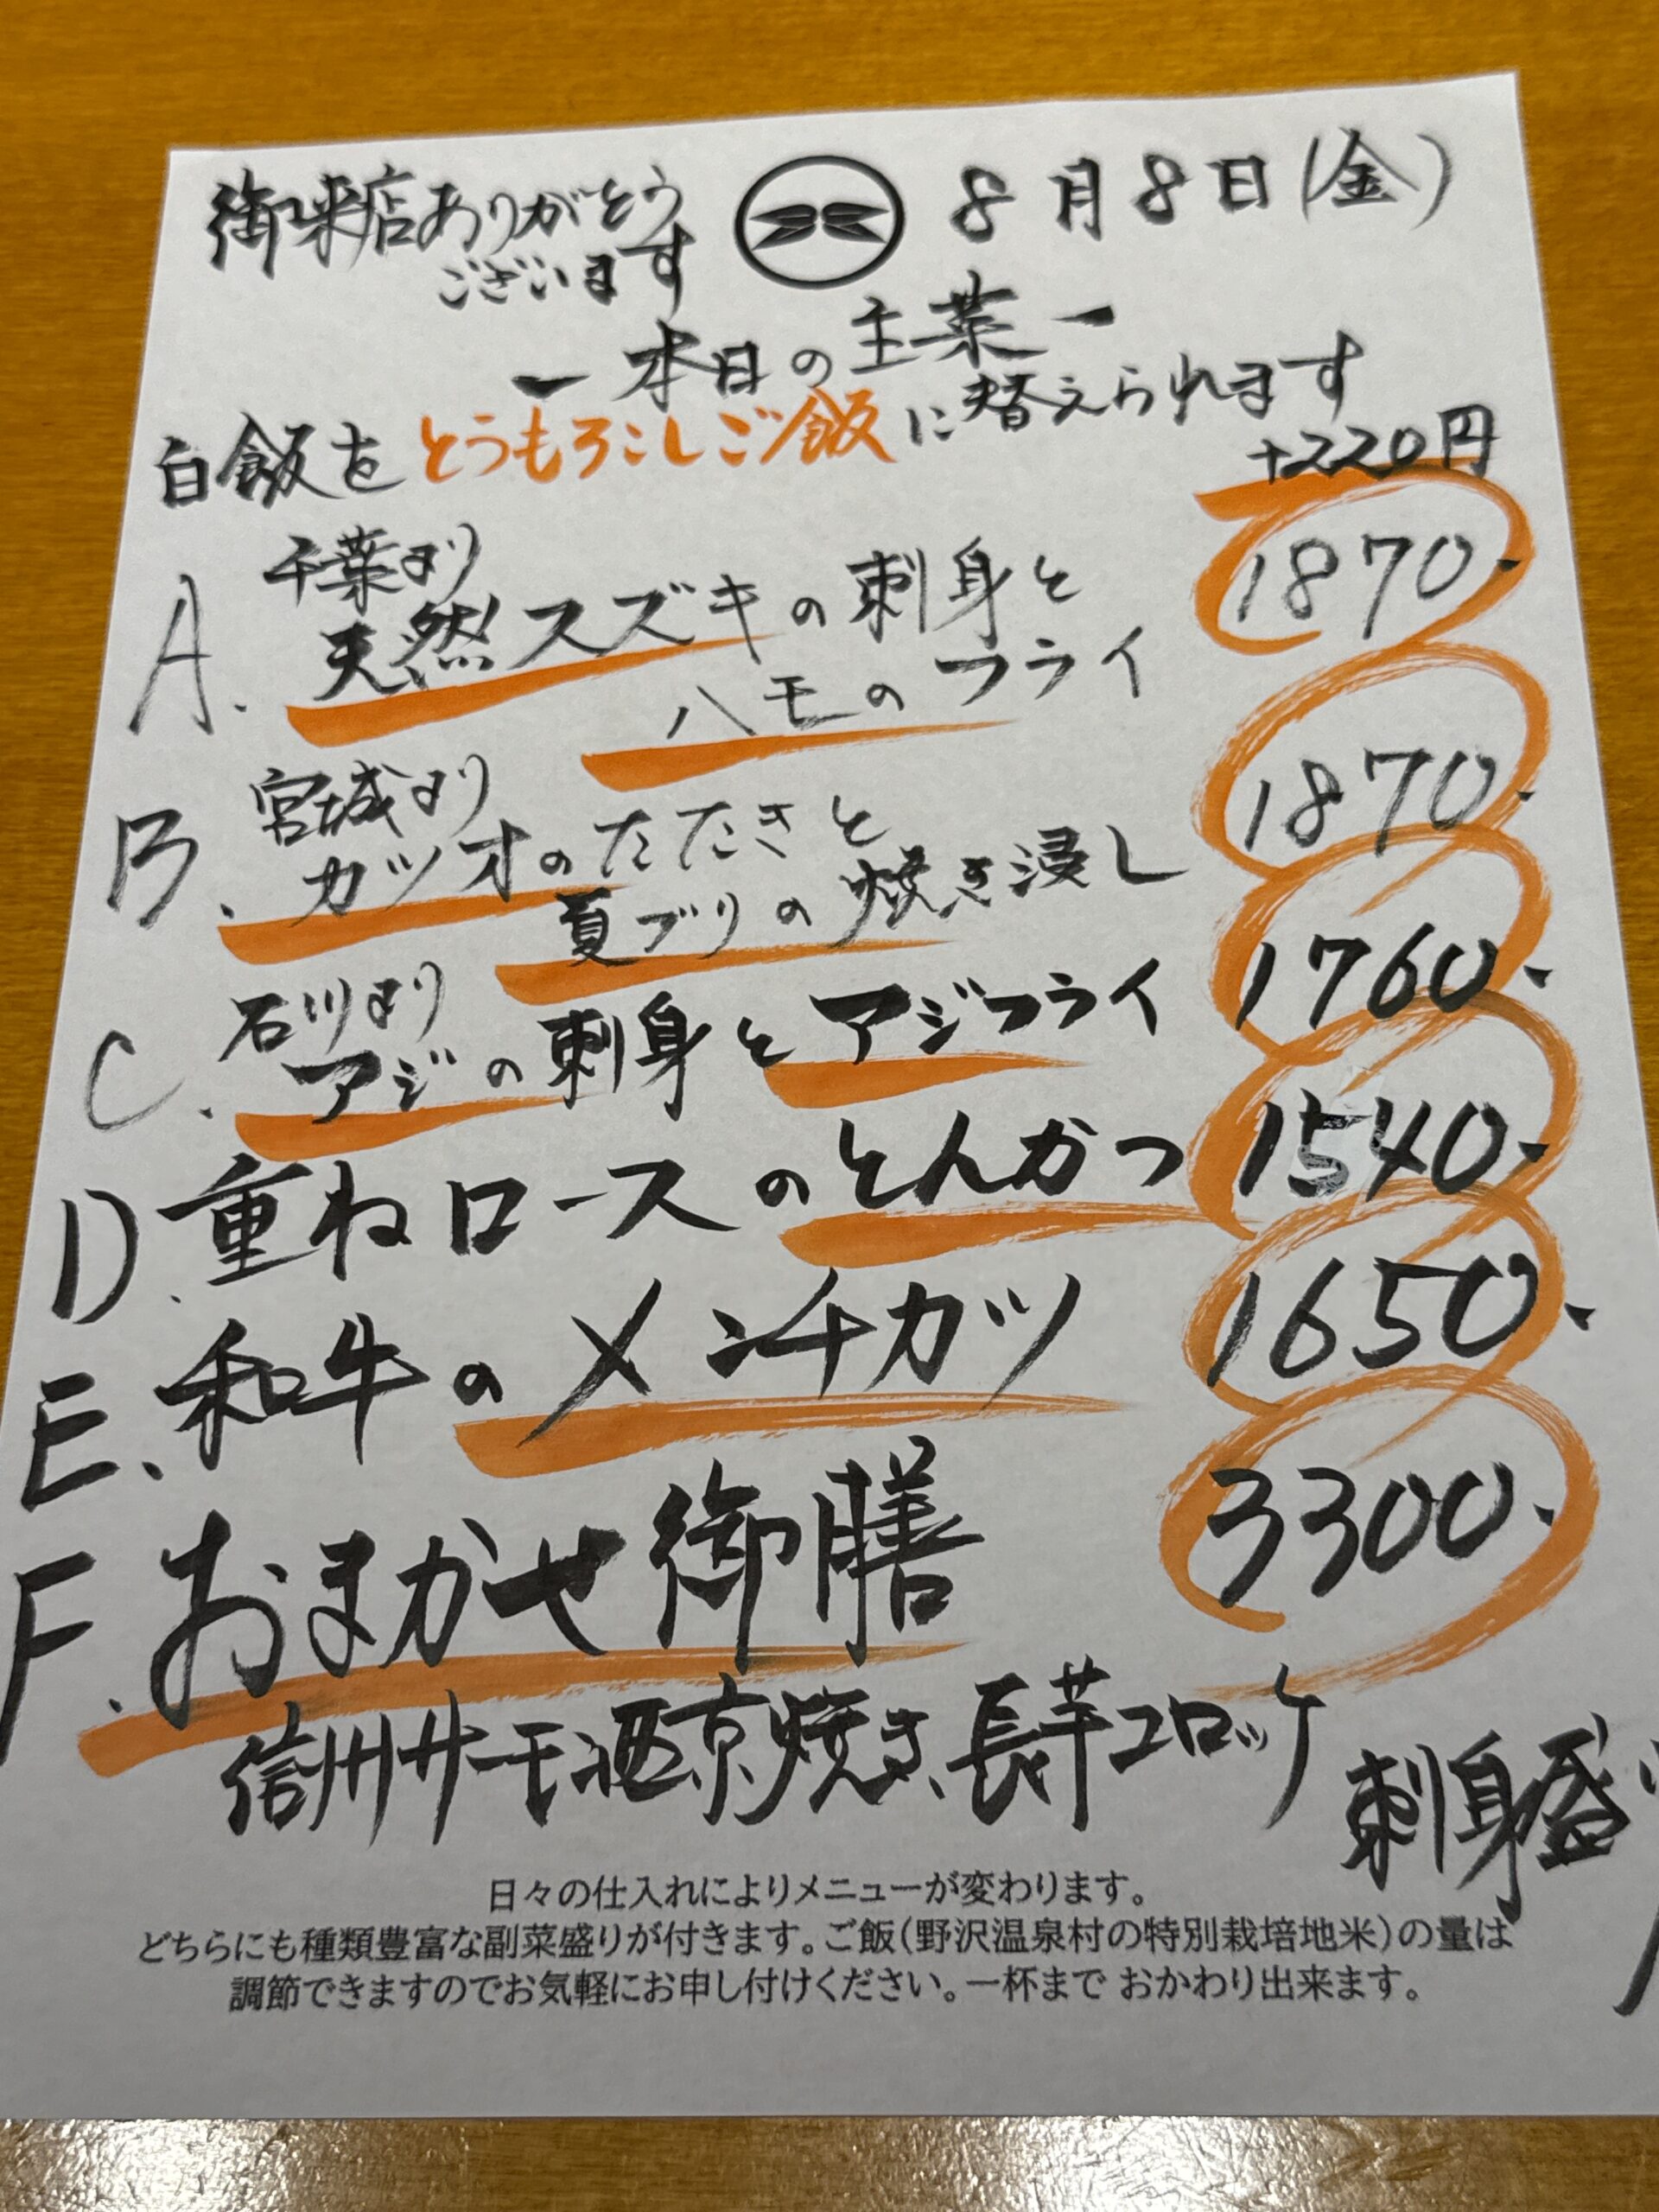 御来店ありがとう
ございます
8月8日(金)
ー本日の主菜ー
白飯をとうもろこしご飯に替えられます
+220円
A. 千葉より
天然スズキの刺身と
ハモのフライ
1870.
B. 宮城より
カツオのたたきと
夏ブリの焼き浸し
1870.
C. 石川より
アジの刺身とアジフライ
1760.
D. 重ねロースのとんかつ 1540.
E. 和牛のメンチカツ 1650.
F. おまかせ御膳 3300.
信州サーモン西京焼き、長芋コロッケ
刺身盛り
日々の仕入れによりメニューが変わります。
どちらにも種類豊富な副菜盛りが付きます。ご飯(野沢温泉村の特別栽培地米)の量は
調節できますのでお気軽にお申し付けください。一杯まで おかわり出来ます。